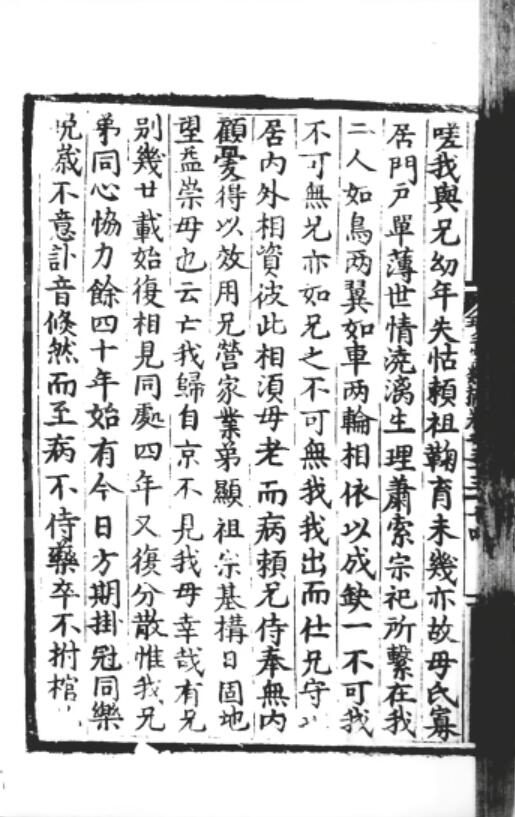 嗟我與兄幼年失怙頼祖鞠育未幾亦故母氏寡
居門戸單薄世情澆漓生理蕭索宗祀所繫在我
二人如鳥兩翼如車兩輪相依以成缺一不可我
不可無兄亦如兄之不可無我我出而仕兄守
居内外相資彼此相湏母老而病頼兄侍奉無内
顧憂得以效用兄營家業弟顯祖宗基構日固地
望益崇母也云亡我歸自京不見我母幸哉有兄
别幾廿載始復相見同處四年又復分散惟我兄
弟同心恊力餘四十年始有今日方期掛冠同樂
晚歲不意訃音倐然而至病不侍藥卒不拊棺